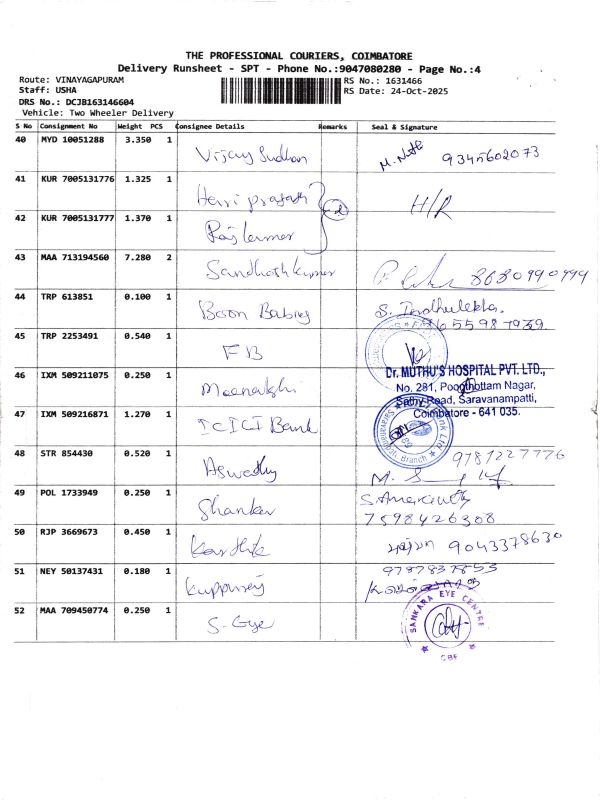 THE PROFESSIONAL COURIERS, COIMBATORE
Delivery Runsheet - SPT - Phone No.:9047080280 - Page No.:4
Route: VINAYAGAPURAM RS No.: 1631466
Staff: USHA RS Date: 24-Oct-2025
DRS No.: DCJB163146604
Vehicle: Two Wheeler Delivery
S No Consignment No Weight PCS Consignee Details Remarks Seal & Signature
40 MYD 10051288 3.350 1
Vijay Sudhan M. Muthu 9345602073
41 KUR 7005131776 1.325 1
Hari prasath H/R
42 KUR 7005131777 1.370 1
Rajkumar
43 MAA 713194560 7.280 2
Sandhosh kumar 8680990999
44 TRP 613851 0.100 1
Boon Babies S. Indhulekha.
45 TRP 2253491 0.540 1
FB
46 IXM 509211075 0.250 1
Meenakshi
Dr. MUTHU'S HOSPITAL PVT. LTD.,
No. 281, Poothottam Nagar,
Sathy Road, Saravanampatti,
Coimbatore - 641 035.
47 IXM 509216871 1.270 1
ICICI Bank
48 STR 854430 0.520 1
Aswathy 9787227776
49 POL 1733949 0.250 1
Shanker
7598426308
50 RJP 3669673 0.450 1
Karthik 9043378630
51 NEY 50137431 0.180 1
Kuppuraj 9787837853
52 MAA 709450774 0.250 1
S-Eye
SANKARA EYE CENTRE
CBE